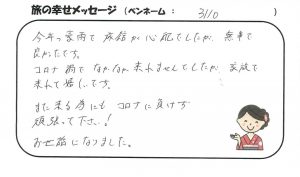 旅の幸せメッセージ (ペンネーム： 3110 )
今年の豪雨で 旅館が心配でしたが、無事で
良かったです。
コロナ禍で なかなか来れませんでしたが、家族で
来れて嬉しいです。
また来る為にも コロナに負けず
頑張って下さい！
お世話になりました。